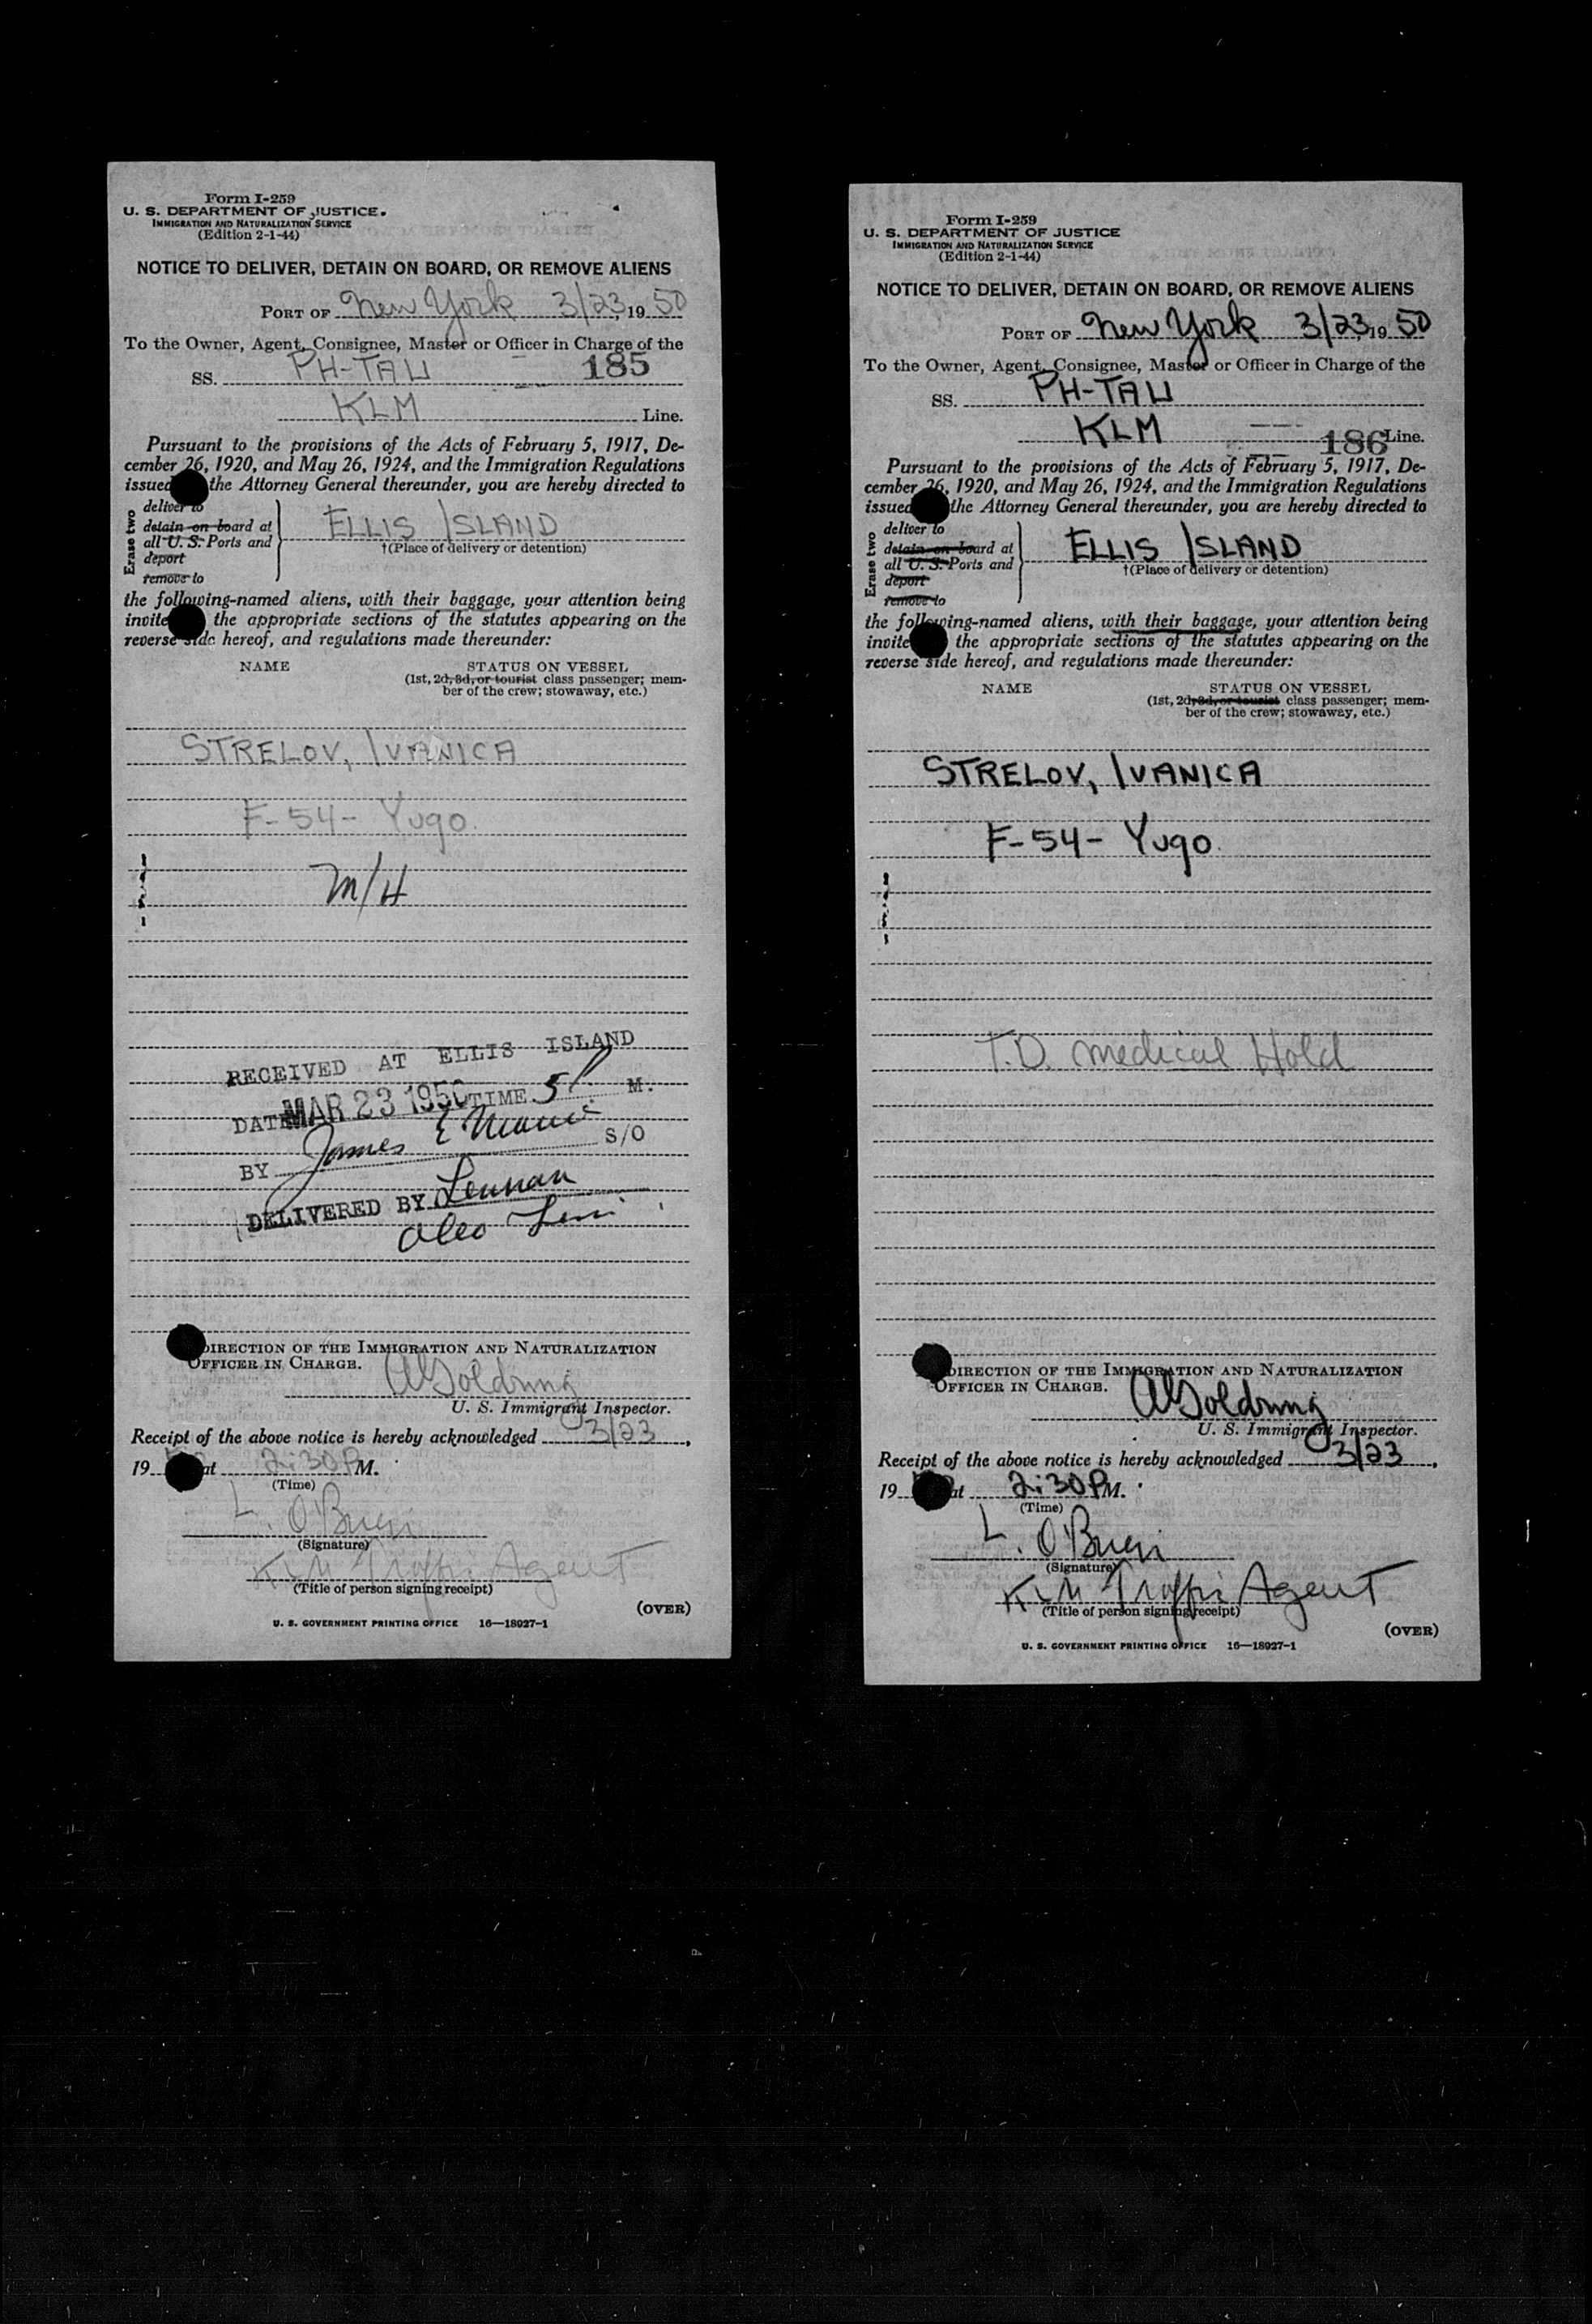 Form I-259
U. S. DEPARTMENT OF JUSTICE.
IMMIGRATION AND NATURALIZATION SERVICE
(Edition 2-1-44)
NOTICE TO DELIVER, DETAIN ON BOARD, OR REMOVE ALIENS
PORT OF New York 3/23, 19 50
To the Owner, Agent, Consignee, Master or Officer in Charge of the
SS. PH-TAU 185
KLM Line.
Pursuant to the provisions of the Acts of February 5, 1917, De-
cember 26, 1920, and May 26, 1924, and the Immigration Regulations
issued the Attorney General thereunder, you are hereby directed to
Erase two
deliver to
detain on board at
all U. S. Ports and
deport
remove to
ELLIS ISLAND
†(Place of delivery or detention)
the following-named aliens, with their baggage, your attention being
invite the appropriate sections of the statutes appearing on the
reverse side hereof, and regulations made thereunder:
NAME STATUS ON VESSEL
(1st, 2d, 3d, or tourist class passenger; mem-
ber of the crew; stowaway, etc.)
STRELOV, IVANICA
F-54- Yugo.
M/H
RECEIVED AT ELLIS ISLAND
DATE MAR 23 1950 TIME 5 M.
BY James E S/O
DELIVERED BY Lennan
DIRECTION OF THE IMMIGRATION AND NATURALIZATION
OFFICER IN CHARGE.
A Goldring
U. S. Immigrant Inspector.
Receipt of the above notice is hereby acknowledged 3/23,
19 at 2:30 PM.
(Time)
L. O'Brien
(Signature)
KLM Traffic Agent
(Title of person signing receipt)
(OVER)
U. S. GOVERNMENT PRINTING OFFICE 16—18027-1
Form I-259
U. S. DEPARTMENT OF JUSTICE
IMMIGRATION AND NATURALIZATION SERVICE
(Edition 2-1-44)
NOTICE TO DELIVER, DETAIN ON BOARD, OR REMOVE ALIENS
PORT OF New York 3/23, 19 50
To the Owner, Agent, Consignee, Master or Officer in Charge of the
SS. PH-TAU
KLM 186 Line.
Pursuant to the provisions of the Acts of February 5, 1917, De-
cember 26, 1920, and May 26, 1924, and the Immigration Regulations
issued the Attorney General thereunder, you are hereby directed to
Erase two
deliver to
detain on board at
all U. S. Ports and
deport
remove to
ELLIS ISLAND
†(Place of delivery or detention)
the following-named aliens, with their baggage, your attention being
invite the appropriate sections of the statutes appearing on the
reverse side hereof, and regulations made thereunder:
NAME STATUS ON VESSEL
(1st, 2d, 3d, or tourist class passenger; mem-
ber of the crew; stowaway, etc.)
STRELOV, IVANICA
F-54- Yugo.
T.D. Medical Hold
DIRECTION OF THE IMMIGRATION AND NATURALIZATION
OFFICER IN CHARGE.
A Goldring
U. S. Immigrant Inspector.
Receipt of the above notice is hereby acknowledged 3/23,
19 at 2:30 PM.
(Time)
L. O'Brien
(Signature)
KLM Traffic Agent
(Title of person signing receipt)
(OVER)
U. S. GOVERNMENT PRINTING OFFICE 16—18027-1